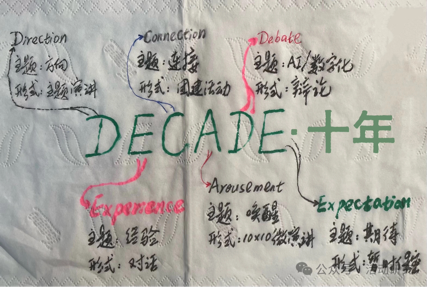 Direction
主题：方向
形式：主题演讲
Connection
主题：连接
形式：团建活动
Debate
主题：AI/数字化
形式：辩论
DECADE·十年
Experience
主题：经验
形式：对话
Arousement
主题：唤醒
形式：10x10微演讲
Expectation
主题：期待
形式：
公众号